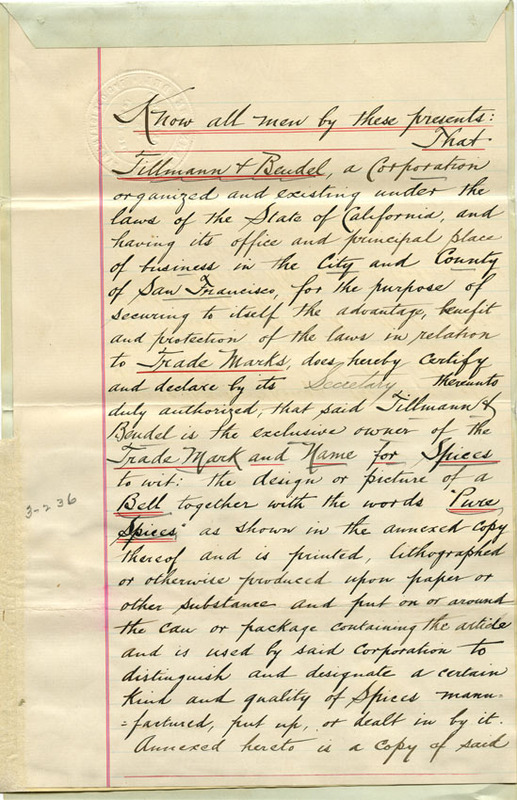 Know all men by these presents:
That
Tillmann & Bendel, a Corporation
organized and existing under the
laws of the State of California, and
having its office and principal place
of business in the City and County
of San Francisco, for the purpose of
securing to itself the advantage, benefit
and protection of the laws in relation
to Trade Marks, does hereby certify
and declare by its Secretary thereunto
duly authorized, that said Tillmann &
Bendel is the exclusive owner of the
Trade Mark and Name for Spices
to wit: the design or picture of a
Bell together with the words "Pure
Spices" as shown in the annexed copy
thereof and is printed, lithographed
or otherwise produced upon paper or
other substance and put on or around
the can or package containing the article
and is used by said Corporation to
distinguish and designate a certain
kind and quality of Spices manu-
=factured, put up, or dealt in by it.
Annexed hereto is a copy of said
3-236